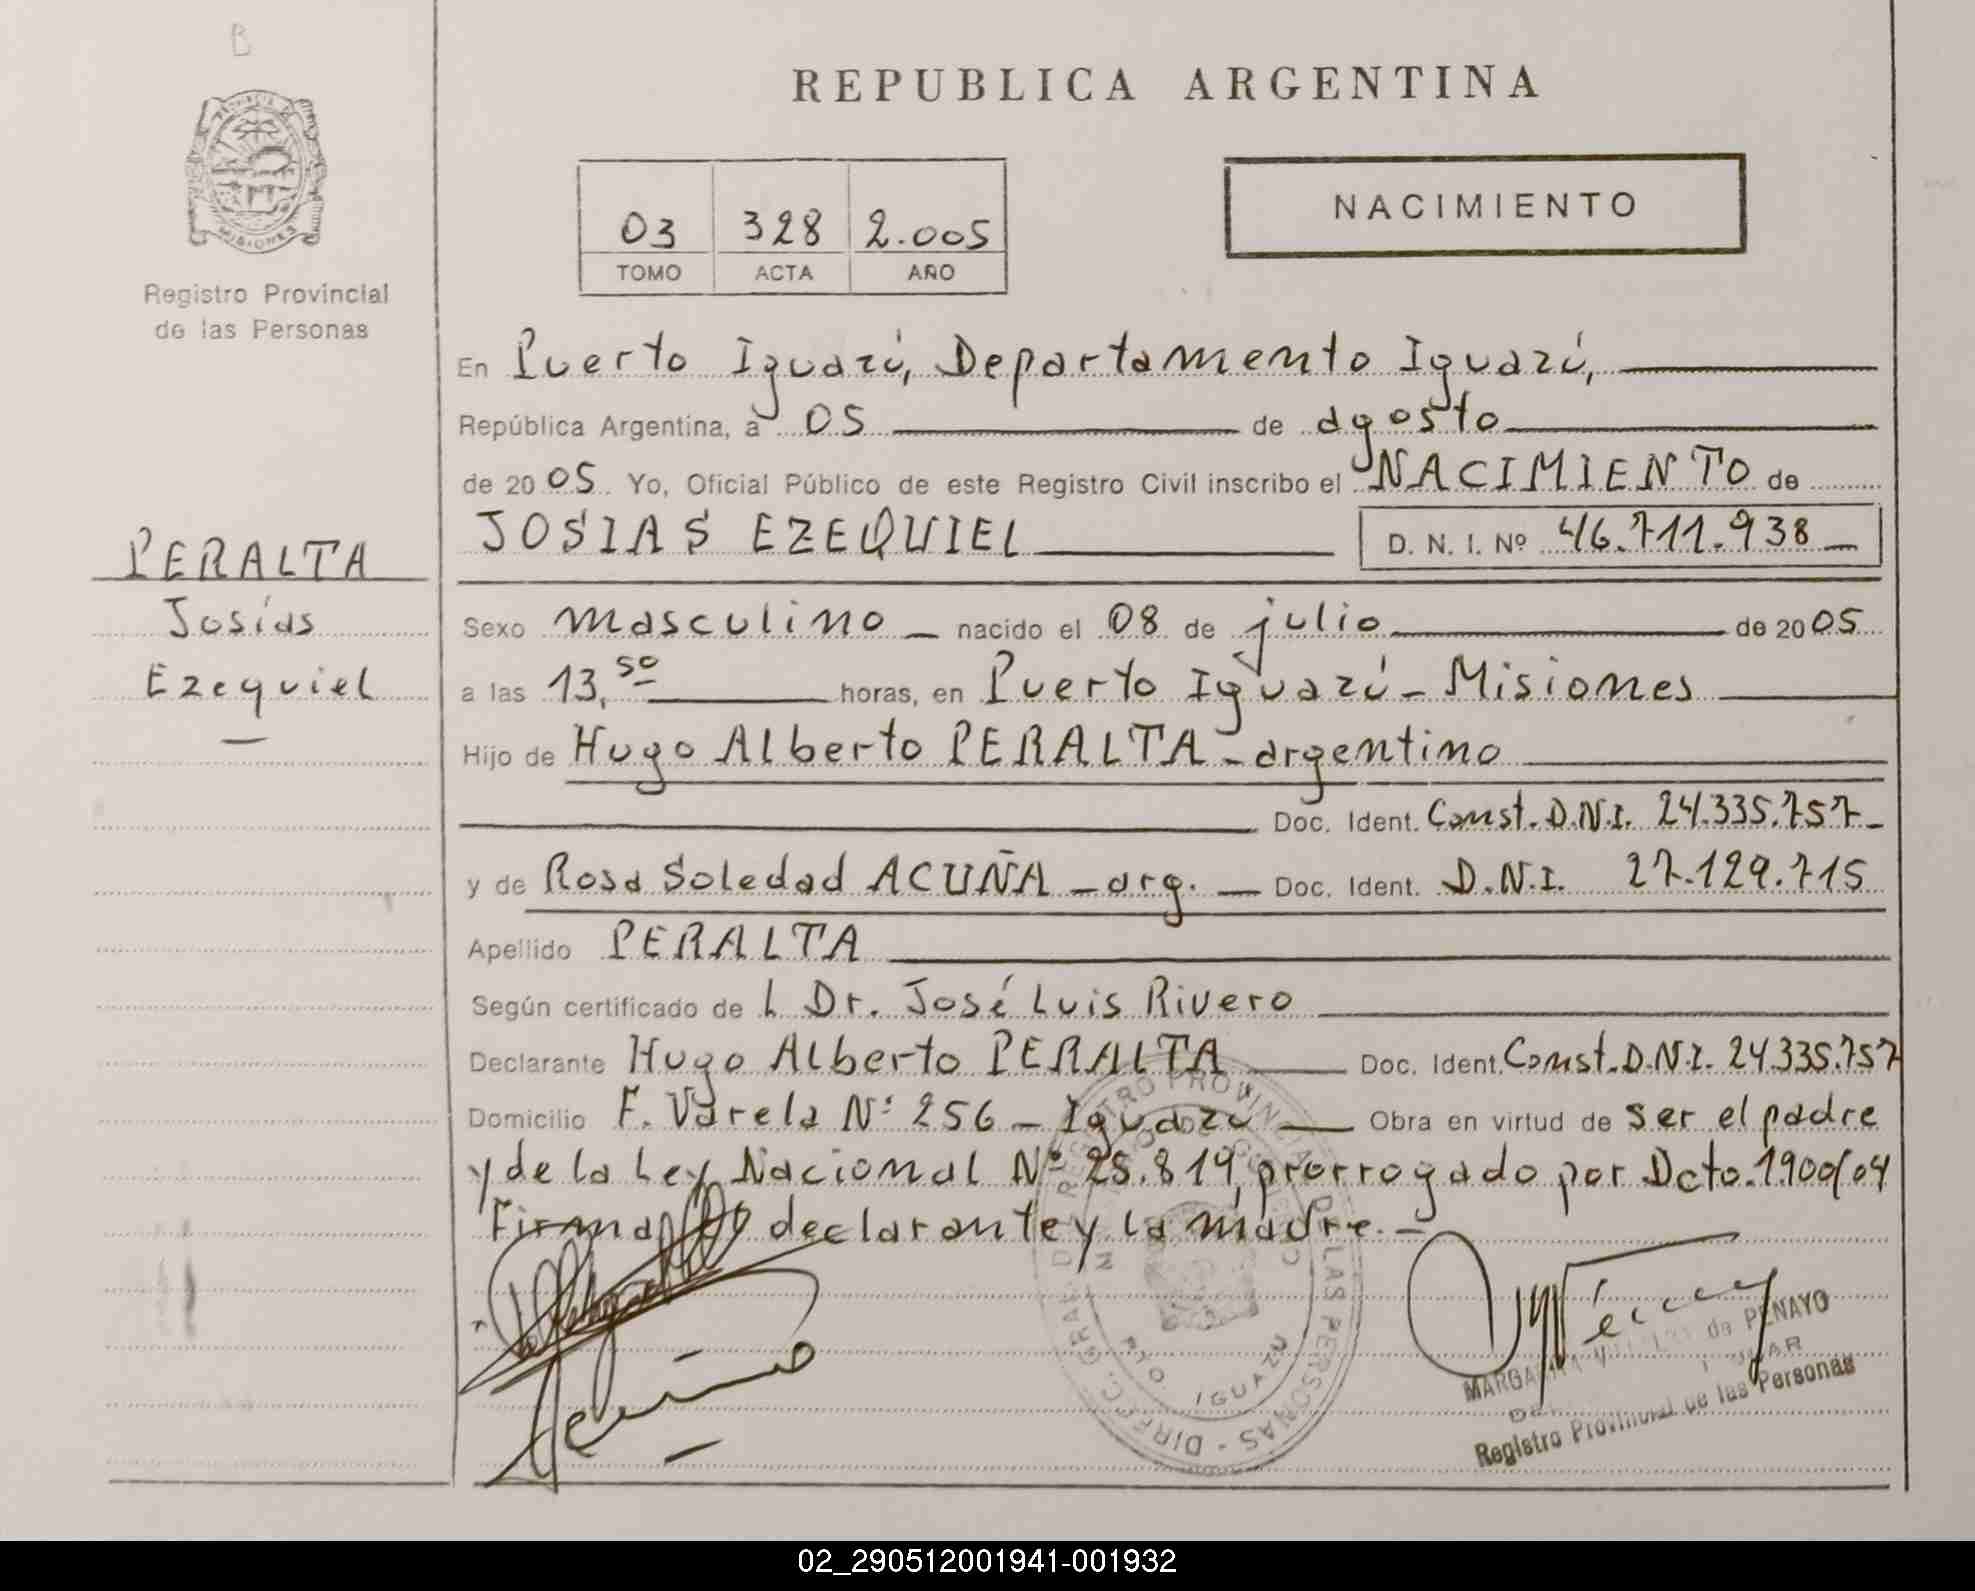 B
REPUBLICA ARGENTINA
PROVINCIA DE
MISIONES
Registro Provincial
de las Personas
03 328 2.005
TOMO ACTA AÑO
NACIMIENTO
En Puerto Iguazú, Departamento Iguazú,
República Argentina, a 05 de agosto
de 2005 Yo, Oficial Público de este Registro Civil inscribo el NACIMIENTO de
JOSIAS EZEQUIEL D. N. I. Nº 46.711.938
PERALTA
Josías
Ezequiel
Sexo masculino nacido el 08 de julio de 2005
a las 13,50 horas, en Puerto Iguazú - Misiones
Hijo de Hugo Alberto PERALTA - argentino
Doc. Ident. Const. D.N.I. 24.335.757
y de Rosa Soledad ACUÑA - arg. Doc. Ident. D.N.I. 27.129.715
Apellido PERALTA
Según certificado de l Dr. José Luis Rivero
Declarante Hugo Alberto PERALTA Doc. Ident. Const. D.N.I. 24.335.757
Domicilio F. Varela Nº 256 - Iguazú Obra en virtud de ser el padre
y de la Ley Nacional Nº 25.819, prorrogado por Dcto. 1.900/04
Firman declarante y la madre. -
DIRECC. GRAL. DE REGISTRO PROVINCIAL DE LAS PERSONAS
PTO. IGUAZU
MARGARITA de PENAYO
Registro Provincial de las Personas
02_290512001941-001932